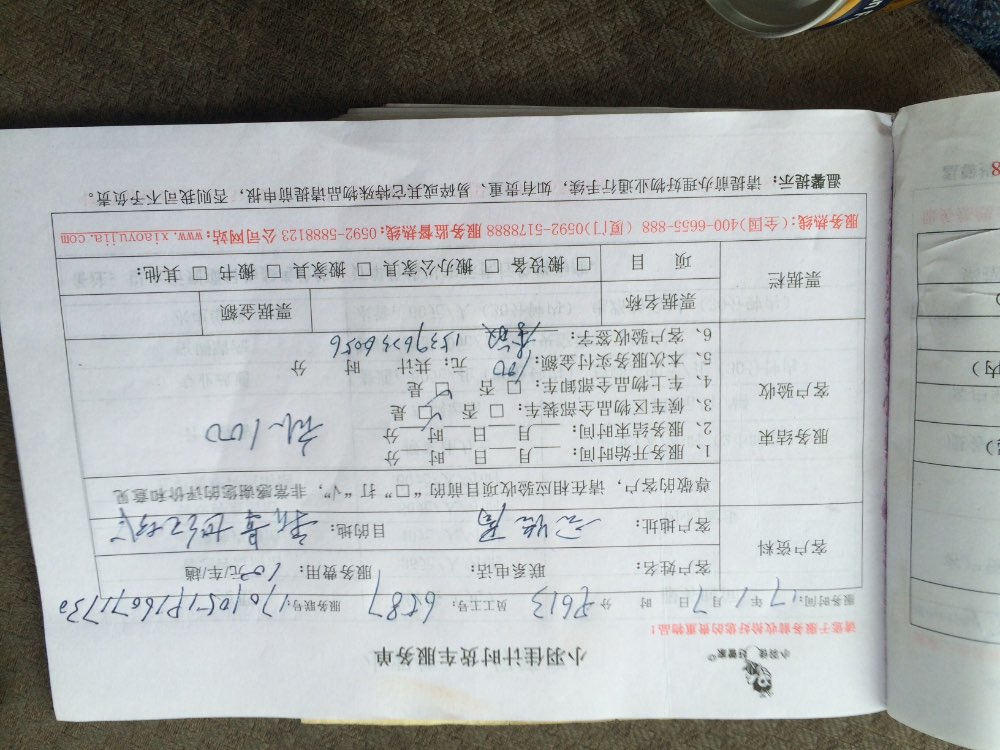 小羽佳 好管家
小羽佳计时货车服务单
请您于服务前收拾好您的贵重物品!
服务时间:17年1月7日 时 分 2613 员工工号:6587 服务联号:
客户资料
客户姓名: 联系电话: 服务费用:100元/车/趟
客户地址: 目的地:
尊敬的客户,请在相应验收项目前的“□”打“√”,非常感谢您的评价和意见
服务结束
客户验收
1、服务开始时间:____月____日____时____分
2、服务结束时间:____月____日____时____分
3、候车区物品全部装车:□ 否 □ 是
4、车上物品全部卸车:□ 否 □ 是
5、本次服务实付金额:100 元;共计 时 分
6、客户验收签字:
100
票据栏
票据名称 票据金额
项 目 □ 搬设备 □ 搬办公家具 □ 搬家具 □ 搬书 □ 其他:
服务热线:(全国)400-6655-888 (厦门)0592-5178888 服务监督热线:0592-5888123 公司网站:www.xiaoyujia.com
温馨提示:请提前办理好物业通行手续,如有贵重、易碎或其它特殊物品请提前申报,否则我司不予负责。